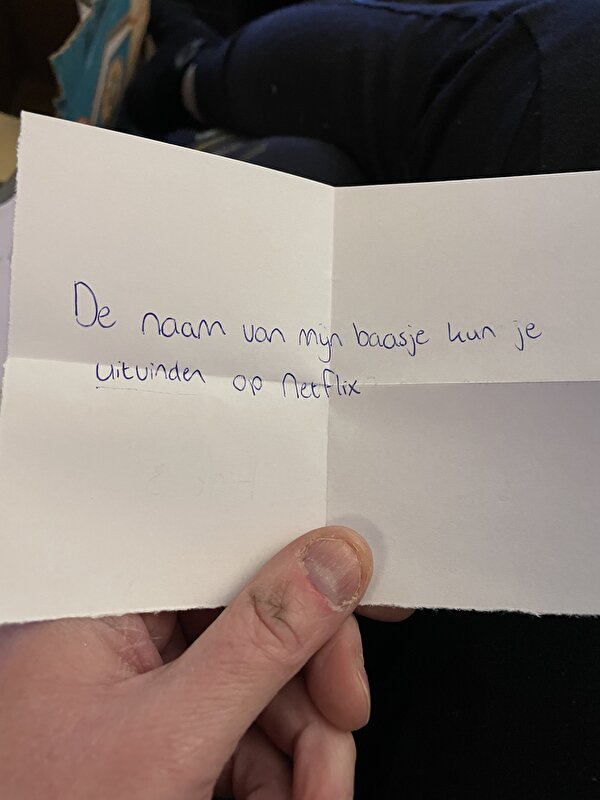 De naam van mijn baasje kun je
uitvinden op netflix